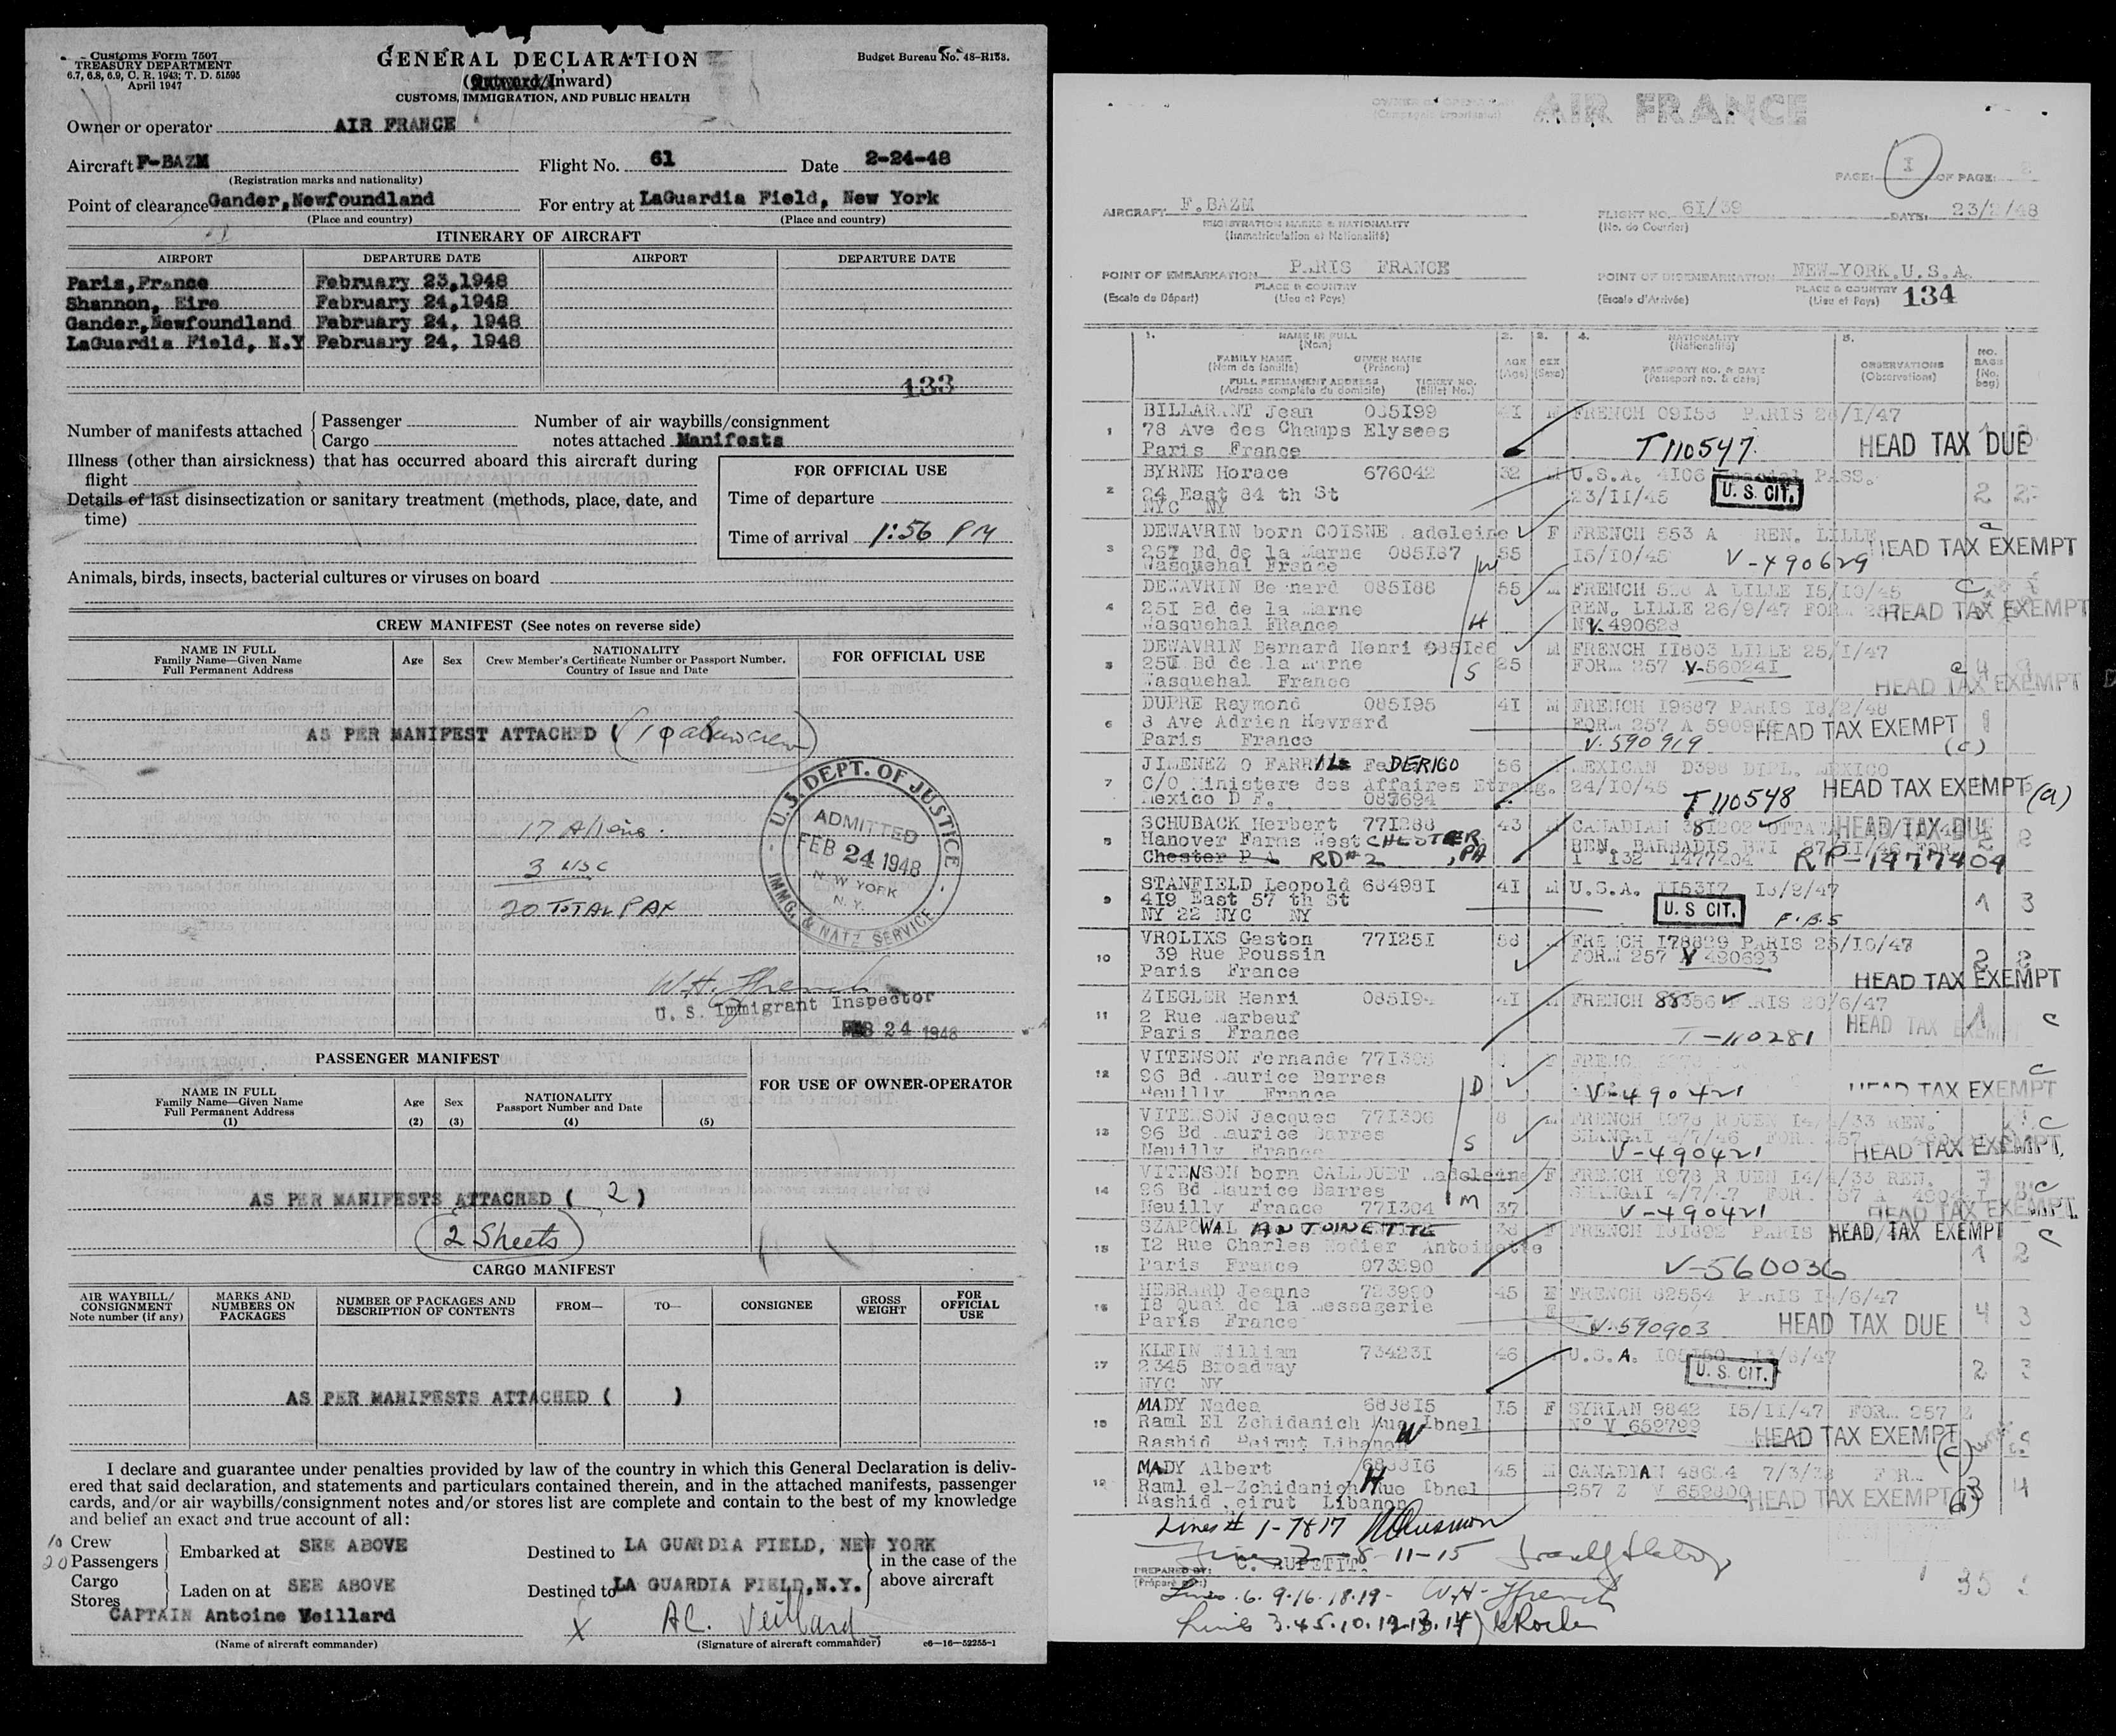 Customs Form 7507
TREASURY DEPARTMENT
6.7, 6.8, 6.9, C. R. 1943; T. D. 51595
April 1947
GENERAL DECLARATION
(Outward/Inward)
CUSTOMS, IMMIGRATION, AND PUBLIC HEALTH
Budget Bureau No. 48-R153.
Owner or operator AIR FRANCE
Aircraft F-BAZM Flight No. 61 Date 2-24-48
(Registration marks and nationality)
Point of clearance Gander, Newfoundland For entry at LaGuardia Field, New York
(Place and country) (Place and country)
ITINERARY OF AIRCRAFT
AIRPORT DEPARTURE DATE AIRPORT DEPARTURE DATE
Paris, France February 23, 1948
Shannon, Eire February 24, 1948
Gander, Newfoundland February 24, 1948
LaGuardia Field, N.Y February 24, 1948
133
Number of manifests attached { Passenger
Cargo
Number of air waybills/consignment
notes attached Manifests
Illness (other than airsickness) that has occurred aboard this aircraft during
flight
Details of last disinsectization or sanitary treatment (methods, place, date, and
time)
FOR OFFICIAL USE
Time of departure
Time of arrival 1:56 PM
Animals, birds, insects, bacterial cultures or viruses on board
CREW MANIFEST (See notes on reverse side)
NAME IN FULL
Family Name—Given Name
Full Permanent Address
Age Sex
NATIONALITY
Crew Member's Certificate Number or Passport Number,
Country of Issue and Date
FOR OFFICIAL USE
AS PER MANIFEST ATTACHED (
17 Aliens.
3 USC
20 TOTAL PAX
U. S. DEPT. OF JUSTICE
ADMITTED
FEB 24 1948
NEW YORK
N. Y.
IMMG. & NATZ SERVICE
W.H. French
U. S. Immigrant Inspector
FEB 24 1948
PASSENGER MANIFEST
NAME IN FULL
Family Name—Given Name
Full Permanent Address
(1)
Age
(2)
Sex
(3)
NATIONALITY
Passport Number and Date
(4)
(5)
FOR USE OF OWNER-OPERATOR
AS PER MANIFESTS ATTACHED ( 2 )
2 Sheets
CARGO MANIFEST
AIR WAYBILL/
CONSIGNMENT
Note number (if any)
MARKS AND
NUMBERS ON
PACKAGES
NUMBER OF PACKAGES AND
DESCRIPTION OF CONTENTS
FROM—
TO—
CONSIGNEE
GROSS
WEIGHT
FOR
OFFICIAL
USE
AS PER MANIFESTS ATTACHED ( )
I declare and guarantee under penalties provided by law of the country in which this General Declaration is deliv-
ered that said declaration, and statements and particulars contained therein, and in the attached manifests, passenger
cards, and/or air waybills/consignment notes and/or stores list are complete and contain to the best of my knowledge
and belief an exact and true account of all:
10 Crew
20 Passengers
Cargo
Stores
Embarked at SEE ABOVE Destined to LA GUARDIA FIELD, NEW YORK
Laden on at SEE ABOVE Destined to LA GUARDIA FIELD, N.Y.
in the case of the
above aircraft
CAPTAIN Antoine Veillard X AC. Veillard
(Name of aircraft commander) (Signature of aircraft commander) c6—16—52255-1
OWNER OR OPERATOR
AIR FRANCE
PAGE: I OF PAGE:
AIRCRAFT F.BAZM FLIGHT NO. 6I/39 DATE: 23/2/48
REGISTRATION MARKS & NATIONALITY
(Immatriculation et Nationalité)
(No. de Courrier)
POINT OF EMBARKATION PARIS FRANCE POINT OF DISEMBARKATION NEW-YORK.U.S.A.
PLACE & COUNTRY PLACE & COUNTRY
(Escale de Départ) (Lieu et Pays) (Escale d'Arrivée) (Lieu et Pays) 134
1. NAME IN FULL
(Nom)
FAMILY NAME GIVEN NAME
(Nom de famille) (Prénom)
FULL PERMANENT ADDRESS TICKET NO.
(Adresse complète du domicile) (Billet No.)
2. AGE (Age)
3. SEX (Sexe)
4. NATIONALITY
(Nationalité)
PASSPORT NO. & DATE
(Passeport no. & date)
5. OBSERVATIONS
(Observations)
NO. BAGS
1 BILLARANT Jean 085I99 4I M FRENCH 09I58 PARIS /I/47
78 Ave des Champs Elysees
Paris France T110547. HEAD TAX DUE
2 BYRNE Horace 676042 32 M U.S.A. 4I06 Special PASS.
24 East 84 th St 23/II/45 U. S. CIT. 2
NYC NY
3 DEWAVRIN born COISNE adeleine F FRENCH 553 A REN. LILLE
25I Bd de la Marne 085I87 55 I5/I0/45 V-490629 HEAD TAX EXEMPT
Wasquehal France W
4 DEWAVRIN Bernard 085I88 55 M FRENCH A LILLE I5/I0/45 C
25I Bd de la Marne REN. LILLE 26/9/47 HEAD TAX EXEMPT
Wasquehal FRance H No V-490628
5 DEWAVRIN Bernard Henri 085I86 M FRENCH II803 LILLE 25/I/47
25I Bd de la Marne S 25 FORM 257 V-56024I C
Wasquehal France HEAD TAX EXEMPT
6 DUPRE Raymond 085I95 4I M FRENCH I9687 PARIS I8/2/48
3 Ave Adrien Hevrard FORM 257 A HEAD TAX EXEMPT 1
Paris France V.590919 (c)
7 JIMENEZ O FARRILL FEDERIGO 56 MEXICAN D398 DIPL. MEXICO
C/O Ministere des Affaires Etrang. 24/I0/45 HEAD TAX EXEMPT (a)
Mexico D F. T110548
8 SCHUBACK Herbert 77I288 43 CANADIAN OTTAWA HEAD TAX DUE
Hanover Farms West CHESTER REN. BARBADIS BWI
Chester P A RD#2, PA I I32 I477404 RP-1477404
9 STANFIELD Leopold 68498I 4I M U.S.A. II53I7 /47
4I9 East 57 th St U. S CIT. F.B.S 1 3
NY 22 NYC NY
10 VROLIXS Gaston 77I25I FRENCH I78829 PARIS 25/I0/47
39 Rue Poussin FORM 257 V 490693 2 2
Paris France HEAD TAX EXEMPT
11 ZIEGLER Henri 085I94 4I FRENCH 88356 PARIS /6/47
2 Rue Marbeuf HEAD TAX EXEMPT 1 C
Paris France T-110281
12 VITENSON Fernande FRENCH C
96 Bd Maurice Barres D
Neuilly France V-490421 HEAD TAX EXEMPT
13 VITENSON Jacques 77I306 8 M FRENCH I978 ROUEN I4/ /33 REN. C
96 Bd Maurice Barres S SHANGAI 4/7/46 HEAD TAX EXEMPT.
Neuilly France V-490421
14 VITENSON born CALLOUET Madeleine F FRENCH I978 ROUEN I4/ /33 REN.
96 Bd Maurice Barres SHANGAI 4/7/47 C
Neuilly France 77I304 M 37 V-490421 HEAD TAX EXEMPT.
15 SZAPOWAL ANTOINETTE 38 F FRENCH I8I892 PARIS HEAD TAX EXEMPT C
I2 Rue Charles Nodier Antoinette 1 2
Paris France V-560036
16 HEBRARD Jeanne 45 F FRENCH 62554 PARIS /6/47
I8 Quai de la Messagerie 4 3
Paris France V-590903 HEAD TAX DUE
17 KLEIN William 73423I 46 U.S.A.
2345 Broadway U. S. CIT. 2
NYC NY
18 MADY Nadea 6838I5 I5 F SYRIAN 9842 I5/II/47 FORM 257 Z
Raml El Zchidanich Rue Ibnel No V 659799
Rashid Beirut Libanon W HEAD TAX EXEMPT (c)
19 MADY Albert 6838I6 45 M CANADIAN 7/3/
Raml el-Zchidanich Rue Ibnel H 257 Z V 659800 3 4
Rashid Beirut Libanon HEAD TAX EXEMPT
Lines # 1-7&17
8-11-15
PREPARED BY: C. RUPETIT. 35
(Préparé par:)
Lines .6. 9.16.18.19- W.H-French
Lines 3.4.5.10.12.13.14)